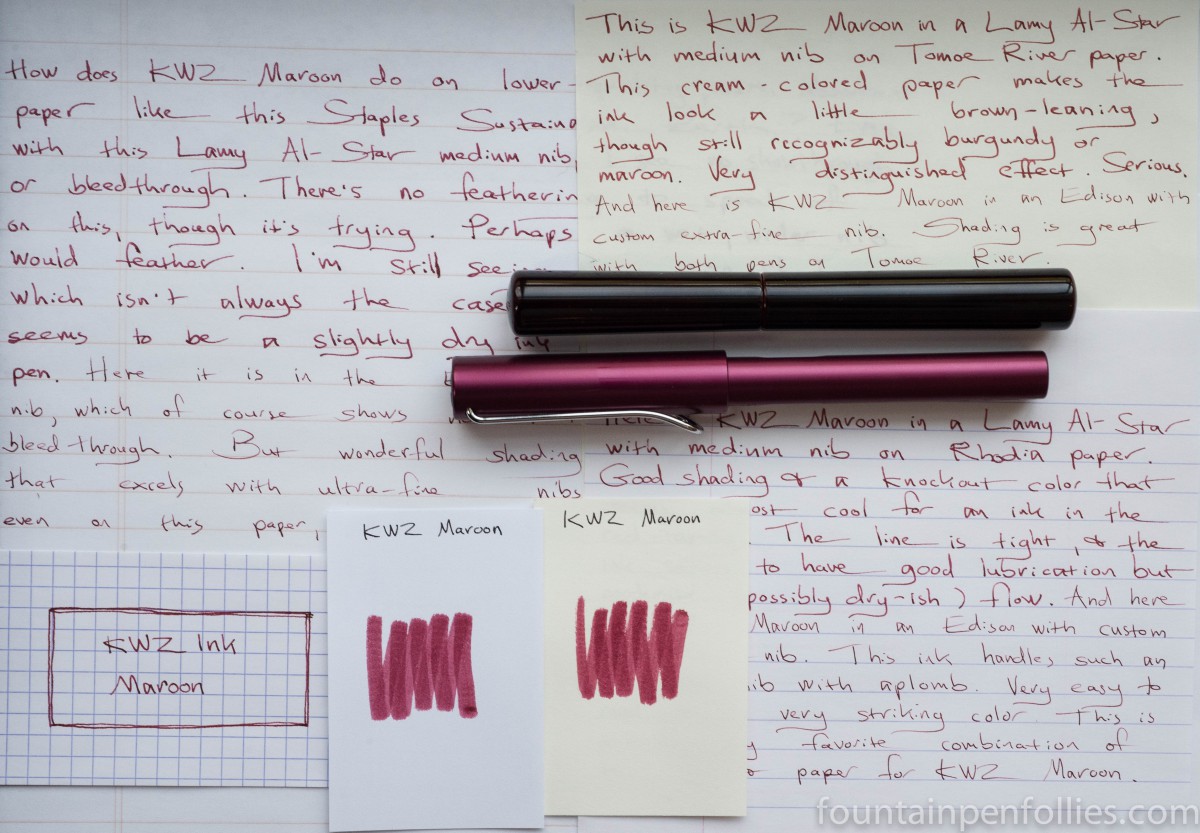 How does KWZ Maroon do on lower-
paper like this Staples
with this Lamy Al-Star medium nib,
or bleedthrough. There's no
on this, though it's trying. Perhaps
would feather. I'm still
which isn't always the case
seems to be a slightly dry ink
pen. Here it is in the
nib, which of course shows
bleed-through. But wonderful shading
that excels with ultra-fine nibs
even on this paper,
This is KWZ Maroon in a Lamy Al-Star
with medium nib on Tomoe River paper.
This cream-colored paper makes the
ink look a little brown-leaning,
though still recognizably burgundy or
maroon. Very distinguished effect. Serious.
And here is KWZ Maroon in an Edison with
custom extra-fine nib. Shading is great
with both pens on Tomoe River.
KWZ Maroon in a Lamy Al-Star
with medium nib on Rhodia paper.
Good shading & a knockout color that
cool for an ink in the
. The line is tight, & the
to have good lubrication but
possibly dry-ish) flow. And here
Maroon in an Edison with custom
nib. This ink handles such an
with aplomb. Very easy to
very striking color. This is
favorite combination of
paper for KWZ Maroon.
KWZ Ink
Maroon
KWZ Maroon
KWZ Maroon
fountainpenfollies.com